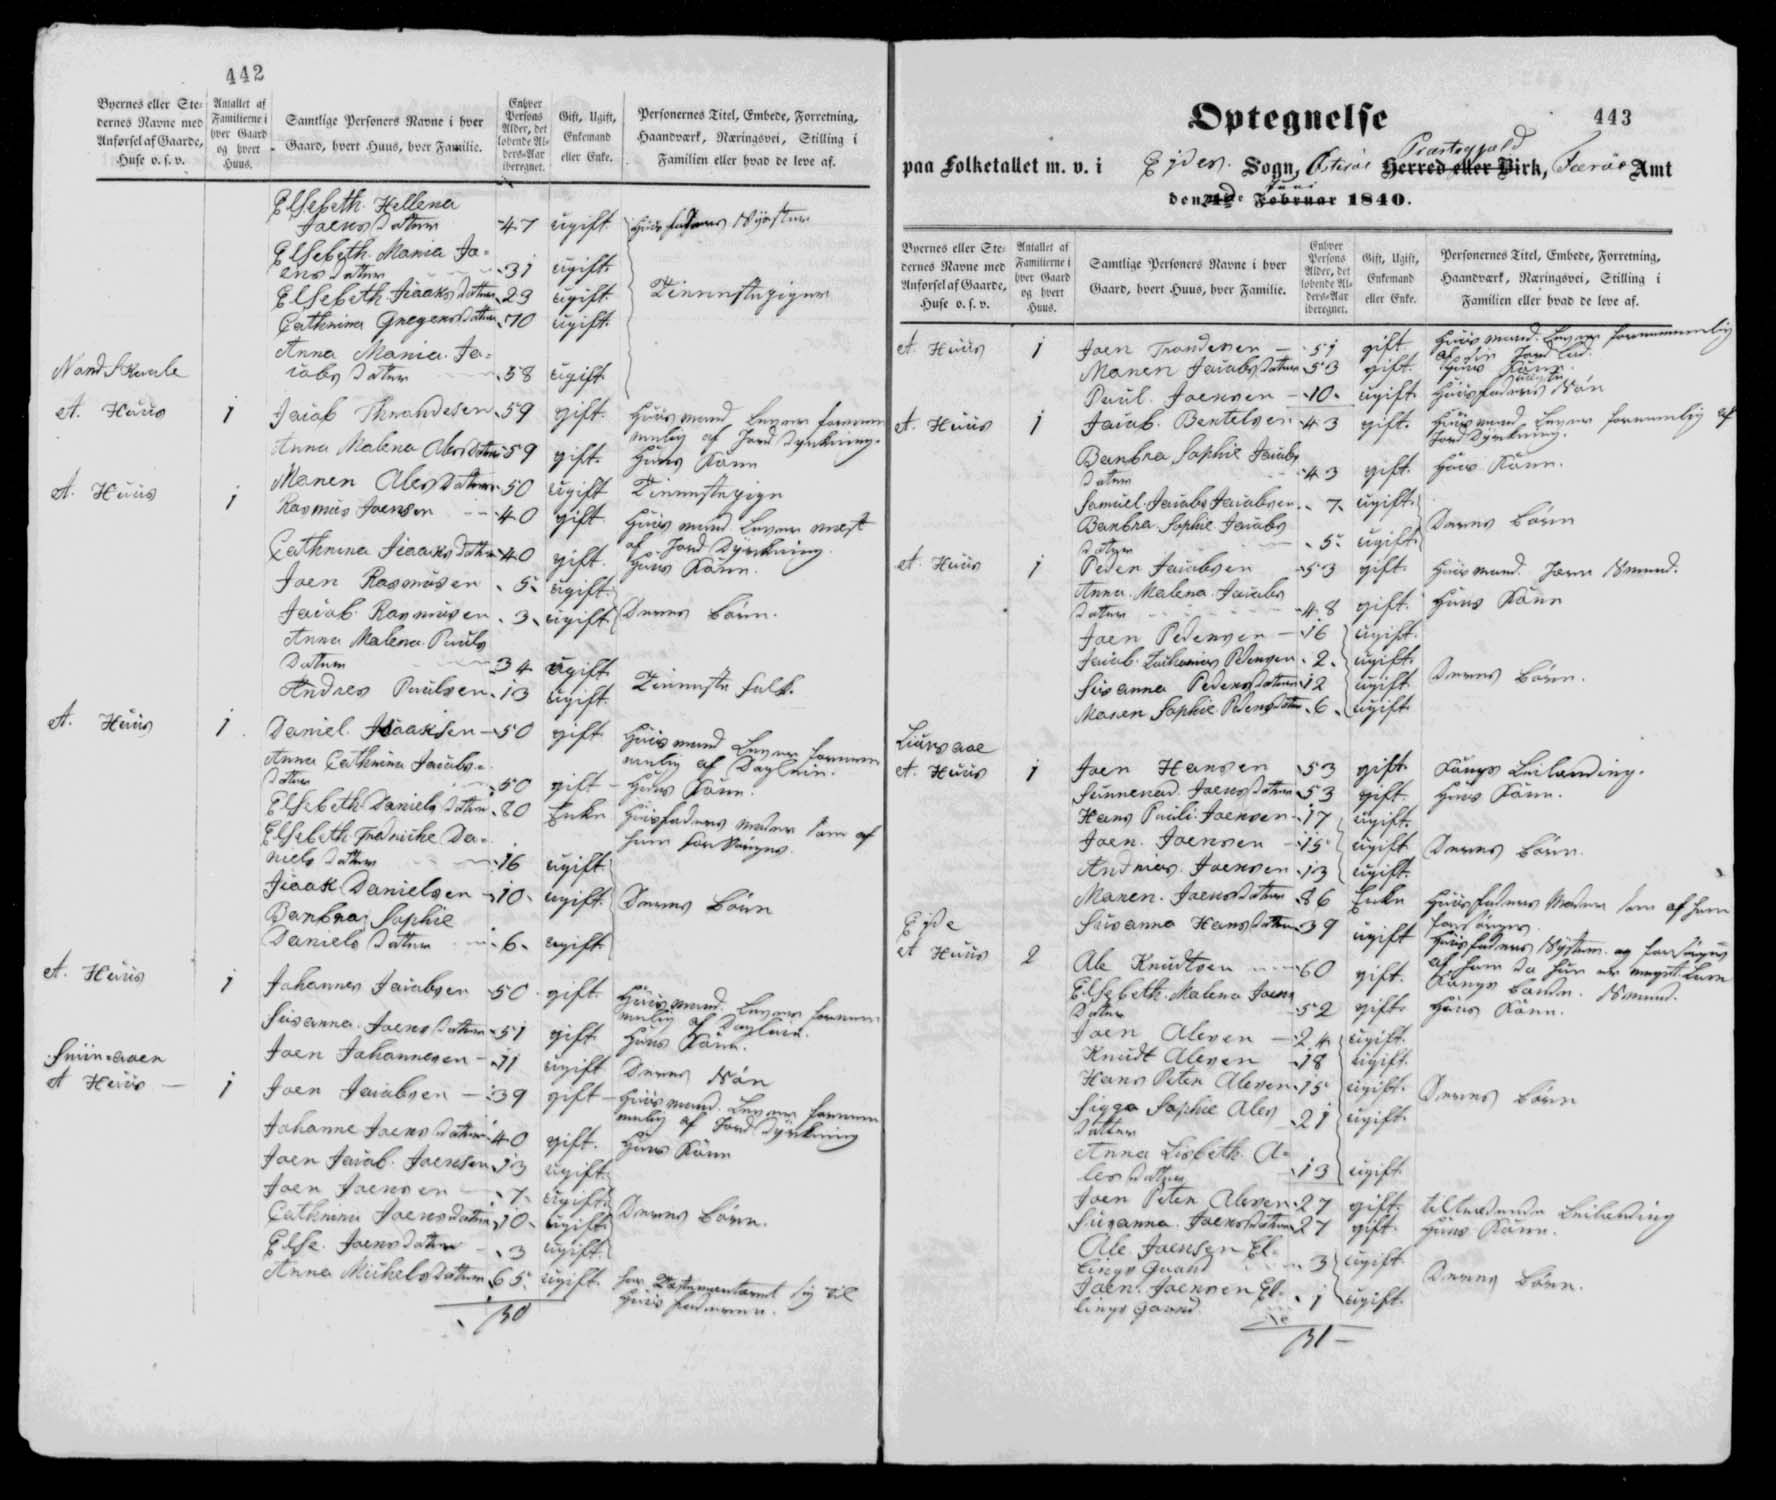 442
Byernes eller Ste-
dernes Navne med
Anførsel af Gaarde,
Huse o. s. v.
Antallet af
Familierne i
hver Gaard
og hvert
Huus.
Samtlige Personers Navne i hver
Gaard, hvert Huus, hver Familie.
Enhver
Persons
Alder, det
løbende Al-
ders-Aar
iberegnet.
Gift, Ugift,
Enkemand
eller Enke.
Personernes Titel, Embede, Forretning,
Haandværk, Næringsvei, Stilling i
Familien eller hvad de leve af.
Elsebeth Hellena
Joensdatter 47 ugift Huusfaders Syster
Elsebeth Maria Jo-
ensdatter 31 ugift
Elsebeth Isaaksdatter 23 ugift Tienestepiger
Cathrina Gregersdatter 70 ugift
Anna Maria Ja-
cobsdatter 58 ugift
Nord Skaale
Et Huus 1 Jacob Thrandesen 59 gift Huusmand Lever fornem
melig af Jorddyrkning.
Anna Malena Olesdatter 59 gift Hans Kone
Maren Olesdatter 50 ugift Tienestepige
Et Huus 1 Rasmus Joensen 40 gift Huusmand Lever mest
af Jorddyrkning.
Cathrina Isaaksdatter 40 gift Hans Kone.
Joen Rasmusen 5 ugift
Jacob Rasmusen 3 ugift Deres Börn.
Anna Malena Pauls
datter 34 ugift
Andres Paulsen 13 ugift Tieneste folk.
Et Huus 1 Daniel Isaaksen 50 gift Huusmand Lever fornem
melig af Dagleie.
Anna Cathrina Jacobs-
datter 50 gift Hans Kone.
Elsebeth Danielsdatter 80 Enke Huusfaders Moder som af
ham forsörges.
Elsebeth Fredricke Da-
nielsdatter 16 ugift
Isaak Danielsen 10 ugift Deres Börn
Barbra Sophie
Danielsdatter 6 ugift
Et Huus 1 Johannes Jacobsen 50 gift Huusmand Lever fornem
melig af Dagleie.
Susanna Joensdatter 51 gift Hans Kone.
Joen Johannesen 11 ugift Deres Sön
Et Huus 1 Joen Jacobsen 39 gift Huusmand Lever fornem
melig af Jorddyrkning
Johanne Joensdatter 40 gift Hans Kone
Joen Jacob Joensen 13 ugift
Joen Joensen 7 ugift
Cathrina Joensdatter 10 ugift Deres Börn.
Else Joensdatter 3 ugift
Anna Michelsdatter 65 ugift har Testamenteret sig til
Huusfaderen.
30
443
Optegnelse
paa Folketallet m. v. i Eyder Sogn, Österöe Herred eller Birk, Præstegjeld Færöe Amt
den Februar Juni 1840.
Byernes eller Ste-
dernes Navne med
Anførsel af Gaarde,
Huse o. s. v.
Antallet af
Familierne i
hver Gaard
og hvert
Huus.
Samtlige Personers Navne i hver
Gaard, hvert Huus, hver Familie.
Enhver
Persons
Alder, det
løbende Al-
ders-Aar
iberegnet.
Gift, Ugift,
Enkemand
eller Enke.
Personernes Titel, Embede, Forretning,
Haandværk, Næringsvei, Stilling i
Familien eller hvad de leve af.
Et Huus 1 Joen Trondesen 51 gift Huusmand Lever fornemmelig
af sin Jordlod.
Maren Jacobsdatter 53 gift Hans Kone
Paul Joensen 10 ugift Huusfaders Sön
Et Huus 1 Jacob Bentelsen 43 gift Huusmand Lever fornemmelig af
Jorddyrkning.
Barbra Sophie Jacobs
datter 43 gift Hans Kone.
Samuel Jacob Jacobsen 7 ugift
Barbra Sophie Jacobs
datter 5 ugift Deres Börn
Et Huus 1 Peder Jacobsen 53 gift Huusmand Jern Smed.
Anna Malena Jacobs
datter 48 gift Hans Kone
Joen Pedersen 16 ugift
Jacob Zacharias Pedersen 2 ugift
Susanna Pedersdatter 12 ugift Deres Börn.
Maren Sophie Pedersdatter 6 ugift
Et Huus 1 Joen Hansen 53 gift Kongs Leilending.
Sunneva Joensdatter 53 gift Hans Kone.
Hans Pauli Joensen 17 ugift
Joen Joensen 15 ugift Deres Börn.
Andreas Joensen 13 ugift
Maren Joensdatter 86 Enke Huusfaders Moder som af ham
forsörges.
Susanna Hansdatter 39 ugift Huusfaders Syster og forsörges
af ham da hun er
Eyde
Et Huus 2 Ole Knudtsen 60 gift Kongs bonde. Smed.
Elsebeth Malena Joens
datter 52 gift Hans Kone.
Joen Olesen 24 ugift
Knudt Olesen 18 ugift
Hans Peter Olesen 15 ugift Deres Börn
Sigga Sophie Oles
datter 21 ugift
Anna Lisbeth O-
lesdatter 13 ugift
Joen Peter Olesen 27 gift tiltrædende Leilending
Susanna Joensdatter 27 gift Hans Kone.
Ole Joensen El-
lings Gaard 3 ugift
Joen Joensen El-
lings Gaard 1 ugift Deres Börn.
31